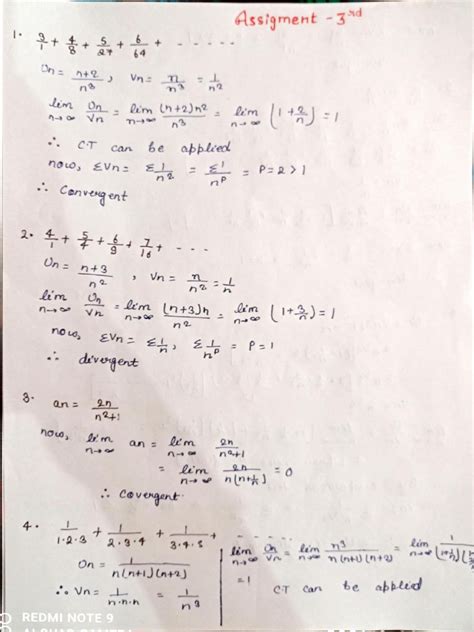 Assigment - 3rd
1. 3/1 + 4/8 + 5/27 + 6/64 + - - - - -
Un = n+2/n³, Vn = n/n³ = 1/n²
lim n→∞ Un/Vn = lim n→∞ (n+2)n²/n³ = lim n→∞ (1+2/n) = 1
∴ C.T can be applied
now, ΣVn = Σ1/n² = Σ1/n^p = P=2>1
∴ Convergent
2. 4/1 + 5/4 + 6/9 + 7/16 + - - -
Un = n+3/n², Vn = n/n² = 1/n
lim n→∞ Un/Vn = lim n→∞ (n+3)n/n² = lim n→∞ (1+3/n) = 1
now, ΣVn = Σ1/n, Σ1/n^p = P=1
∴ divergent
3. an = 2n/n²+1
now, lim n→∞ an = lim n→∞ 2n/n²+1
= lim n→∞ 2n/n(n+1/n) = 0
∴ Covergent.
4. 1/1·2·3 + 1/2·3·4 + 1/3·4·5 + - - - - -
Un = 1/n(n+1)(n+2)
∴ Vn = 1/n·n·n = 1/n³
lim n→∞ Un/Vn = lim n→∞ n³/n(n+1)(n+2) = lim n→∞
= 1
C.T can be applied
REDMI NOTE 9